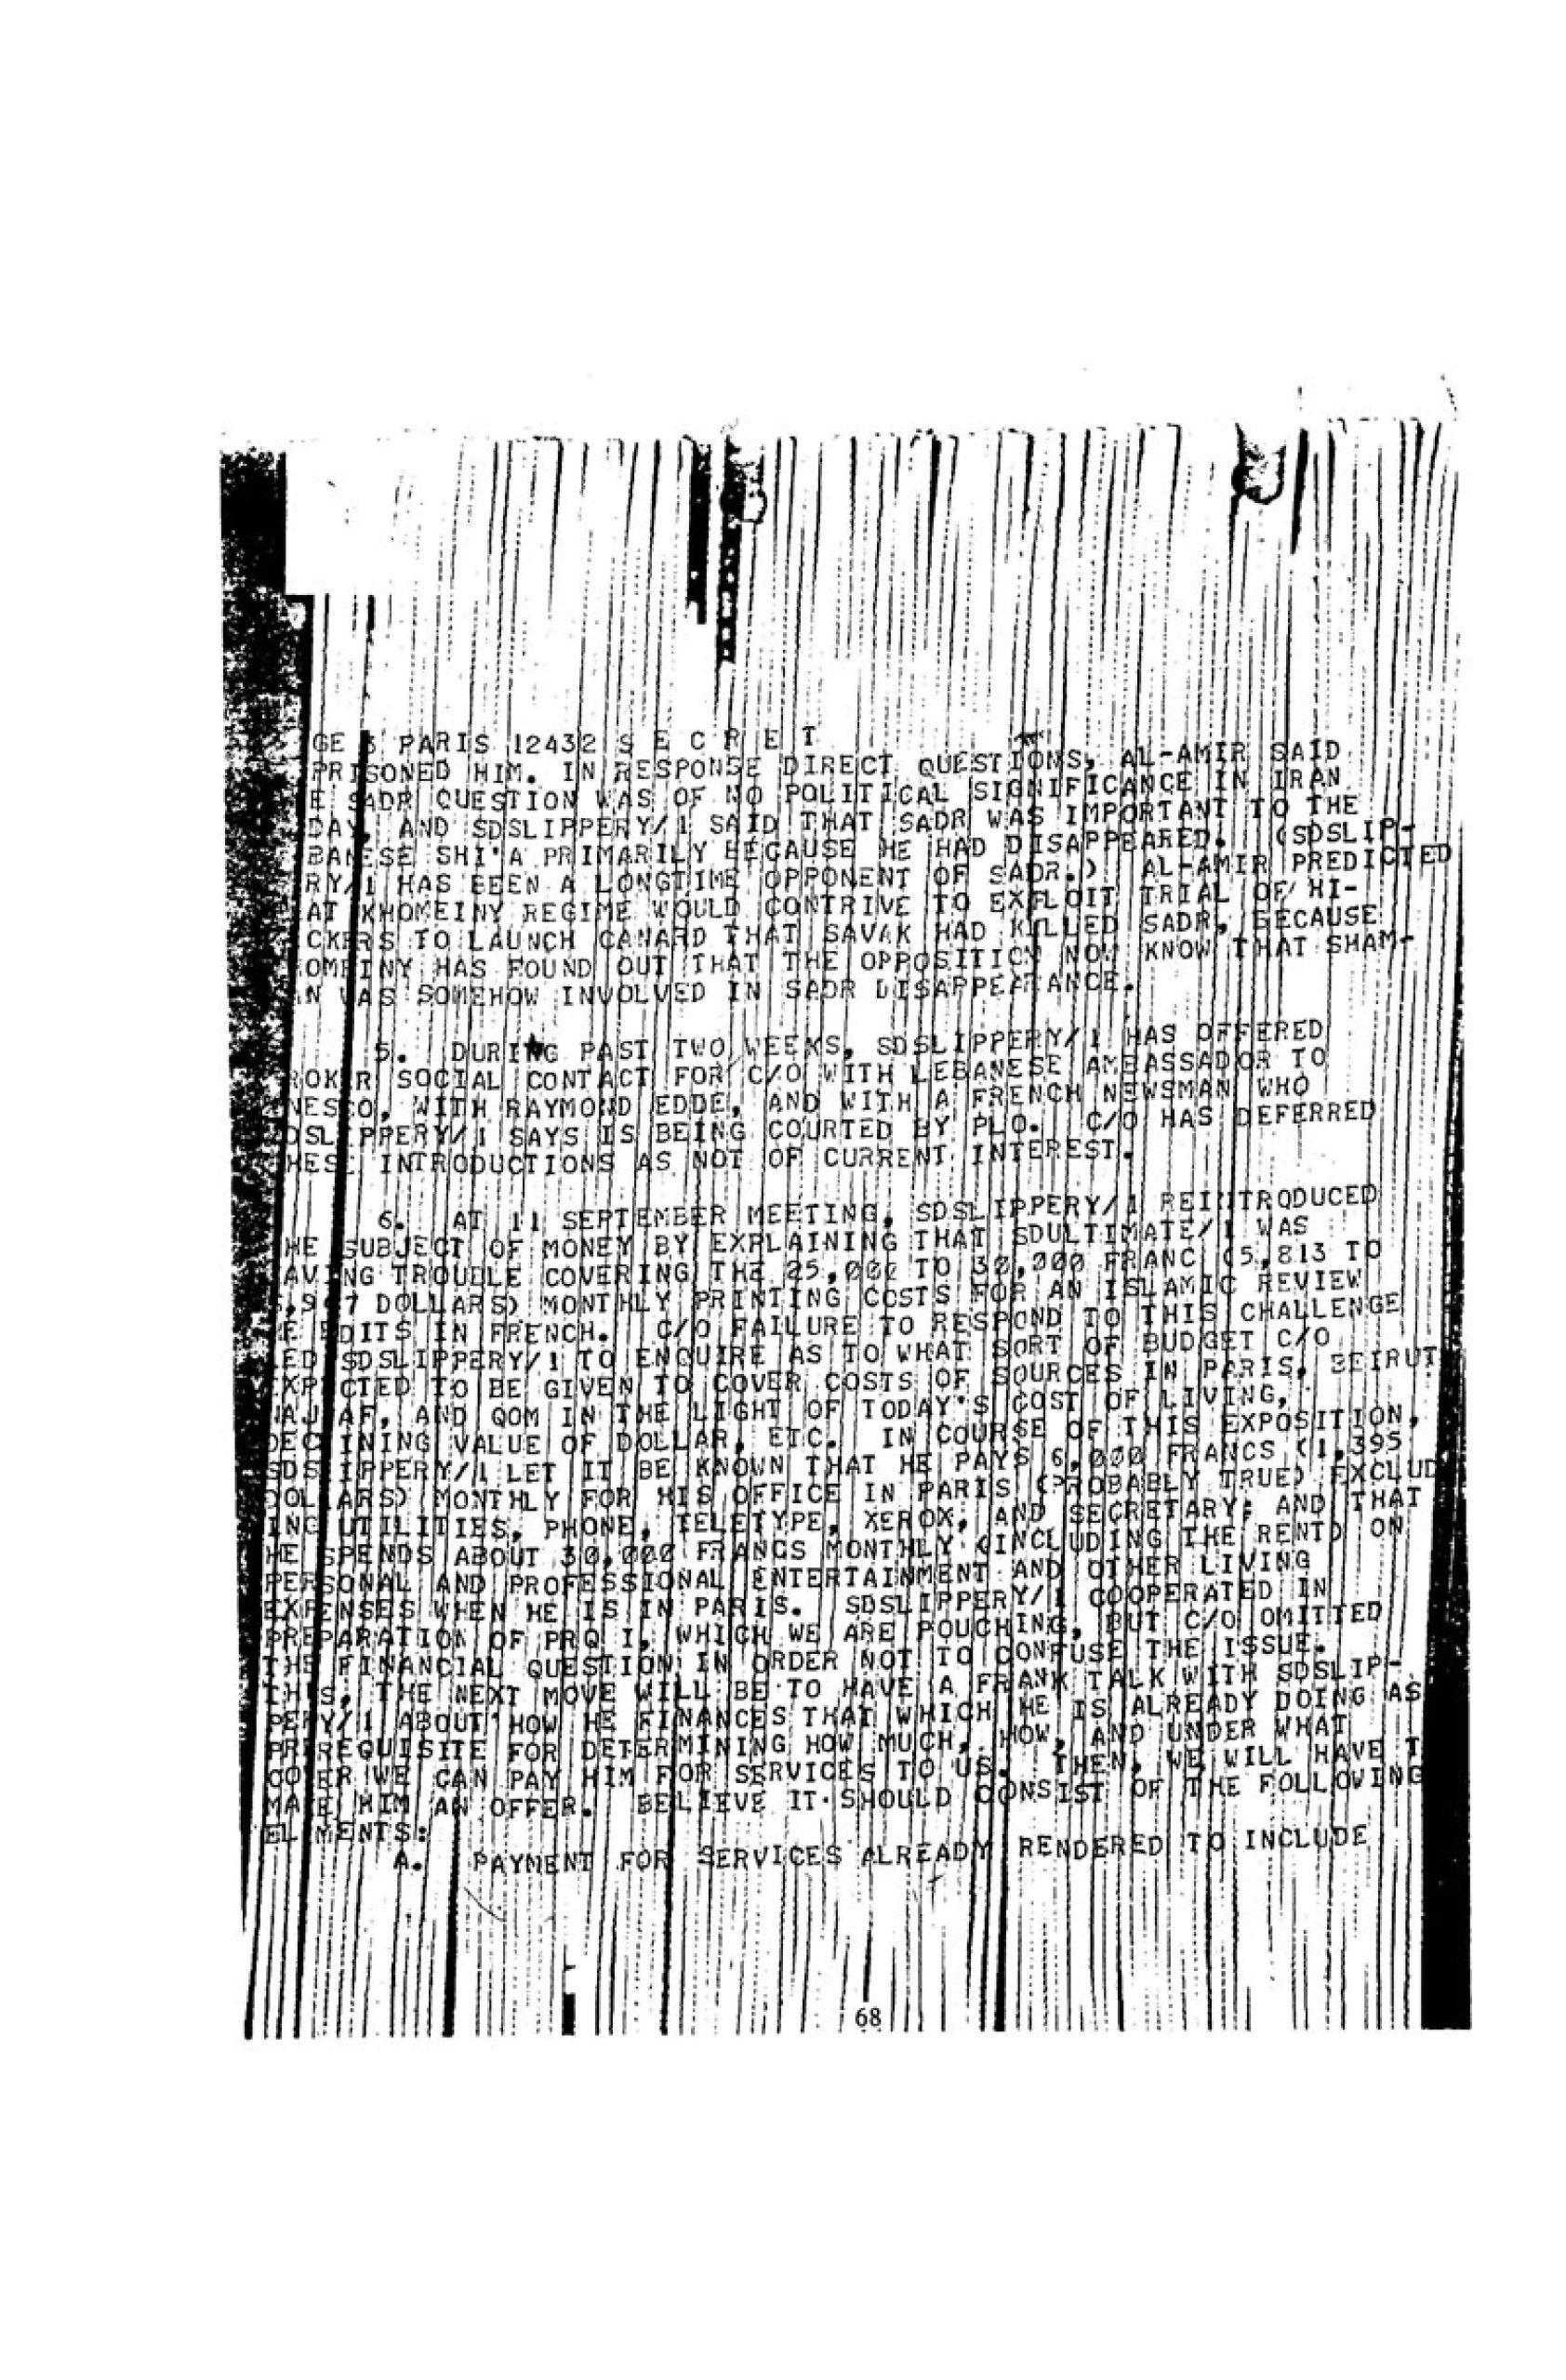 GE 3 PARIS 12432 S E C R E T
PRISONED HIM. IN RESPONSE DIRECT QUESTIONS, AL-AMIR SAID
E SADR QUESTION WAS OF NO POLITICAL SIGNIFICANCE IN IRAN
DAY, AND SDSLIPPERY/1 SAID THAT SADR WAS IMPORTANT TO THE
BANESE SHI'A PRIMARILY BECAUSE HE HAD DISAPPEARED. (SDSLIP-
RY/1 HAS BEEN A LONGTIME OPPONENT OF SADR.) AL-AMIR PREDICTED
AT KHOMEINY REGIME WOULD CONTRIVE TO EXPLOIT TRIAL OF HI-
CKERS TO LAUNCH CANARD THAT SAVAK HAD KILLED SADR, BECAUSE
OMEINY HAS FOUND OUT THAT THE OPPOSITION NOW KNOW THAT SHAM-
N WAS SOMEHOW INVOLVED IN SADR DISAPPEARANCE.
5. DURING PAST TWO WEEKS, SDSLIPPERY/1 HAS OFFERED
ROKER SOCIAL CONTACT FOR C/O WITH LEBANESE AMBASSADOR TO
NESCO, WITH RAYMOND EDDE, AND WITH A FRENCH NEWSMAN WHO
DSLIPPERY/1 SAYS IS BEING COURTED BY PLO. C/O HAS DEFERRED
HESE INTRODUCTIONS AS NOT OF CURRENT INTEREST.
6. AT 11 SEPTEMBER MEETING, SDSLIPPERY/1 REINTRODUCED
HE SUBJECT OF MONEY BY EXPLAINING THAT SDULTIMATE/1 WAS
AVING TROUBLE COVERING THE 25,000 TO 30,000 FRANC (5,813 TO
,967 DOLLARS) MONTHLY PRINTING COSTS FOR AN ISLAMIC REVIEW
E EDITS IN FRENCH. C/O FAILURE TO RESPOND TO THIS CHALLENGE
ED SDSLIPPERY/1 TO ENQUIRE AS TO WHAT SORT OF BUDGET C/O
XPECTED TO BE GIVEN TO COVER COSTS OF SOURCES IN PARIS, BEIRUT
NAJAF, AND QOM IN THE LIGHT OF TODAY'S COST OF LIVING,
DECLINING VALUE OF DOLLAR, ETC. IN COURSE OF THIS EXPOSITION,
SDSLIPPERY/1 LET IT BE KNOWN THAT HE PAYS 6,000 FRANCS (1,395
DOLLARS) MONTHLY FOR HIS OFFICE IN PARIS (PROBABLY TRUE) EXCLUD
ING UTILITIES, PHONE, TELETYPE, XEROX, AND SECRETARY; AND THAT
HE SPENDS ABOUT 30,000 FRANCS MONTHLY (INCLUDING THE RENT) ON
PERSONAL AND PROFESSIONAL ENTERTAINMENT AND OTHER LIVING
EXPENSES WHEN HE IS IN PARIS. SDSLIPPERY/1 COOPERATED IN
PREPARATION OF PRQ I, WHICH WE ARE POUCHING, BUT C/O OMITTED
THE FINANCIAL QUESTION IN ORDER NOT TO CONFUSE THE ISSUE.
THIS, THE NEXT MOVE WILL BE TO HAVE A FRANK TALK WITH SDSLIP-
PERY/1 ABOUT HOW HE FINANCES THAT WHICH HE IS ALREADY DOING AS
PREREQUISITE FOR DETERMINING HOW MUCH, HOW, AND UNDER WHAT
COVER WE CAN PAY HIM FOR SERVICES TO US. THEN, WE WILL HAVE T
MAKE HIM AN OFFER. BELIEVE IT SHOULD CONSIST OF THE FOLLOWING
ELEMENTS:
A. PAYMENT FOR SERVICES ALREADY RENDERED TO INCLUDE
68